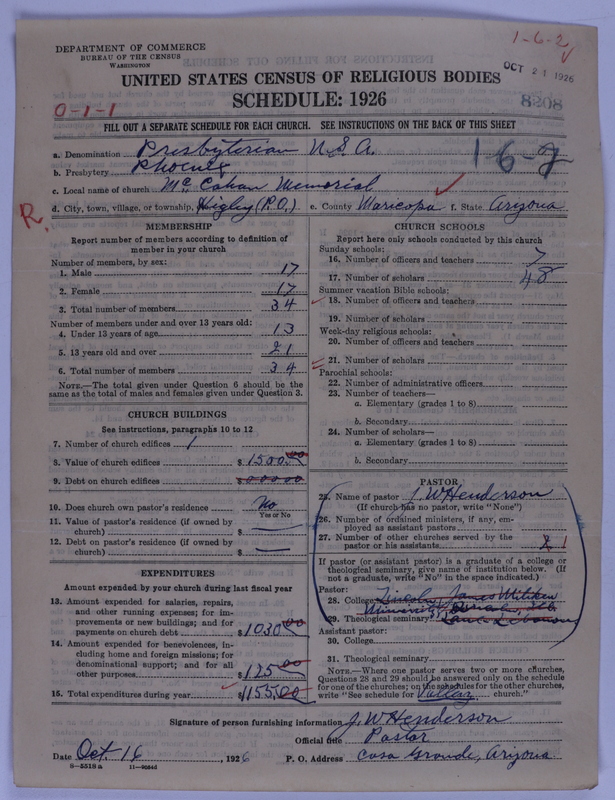 DEPARTMENT OF COMMERCE
BUREAU OF THE CENSUS
WASHINGTON
1-6-2
OCT 21 1926
UNITED STATES CENSUS OF RELIGIOUS BODIES
SCHEDULE: 1926
0-1-1
FILL OUT A SEPARATE SCHEDULE FOR EACH CHURCH. SEE INSTRUCTIONS ON THE BACK OF THIS SHEET
a. Denomination Presbyterian U.S.A.
1-6-2
b. Presbytery Phoenix
c. Local name of church Mc Cahan Memorial
R.
d. City, town, village, or township, Higley (P.O.) e. County Maricopa f. State Arizona
MEMBERSHIP
Report number of members according to definition of
member in your church
Number of members, by sex:
1. Male 17
2. Female 17
3. Total number of members 34
Number of members under and over 13 years old:
4. Under 13 years of age 13
5. 13 years old and over 21
6. Total number of members 34
NOTE.—The total given under Question 6 should be the
same as the total of males and females given under Question 3.
CHURCH BUILDINGS
See instructions, paragraphs 10 to 12
7. Number of church edifices 1
8. Value of church edifices $1500.00
9. Debt on church edifices $00000
10. Does church own pastor's residence No
Yes or No
11. Value of pastor's residence (if owned by
church) $ —
12. Debt on pastor's residence (if owned by
church) $ —
EXPENDITURES
Amount expended by your church during last fiscal year
13. Amount expended for salaries, repairs,
and other running expenses; for im-
provements or new buildings; and for
payments on church debt $1030.00
14. Amount expended for benevolences, in-
cluding home and foreign missions; for
denominational support; and for all
other purposes $125.00
15. Total expenditures during year $1155.00
CHURCH SCHOOLS
Report here only schools conducted by this church
Sunday schools:
16. Number of officers and teachers 7
17. Number of scholars 48
Summer vacation Bible schools:
18. Number of officers and teachers
19. Number of scholars
Week-day religious schools:
20. Number of officers and teachers
21. Number of scholars
Parochial schools:
22. Number of administrative officers
23. Number of teachers—
a. Elementary (grades 1 to 8)
b. Secondary
24. Number of scholars—
a. Elementary (grades 1 to 8)
b. Secondary
PASTOR
25. Name of pastor J. W Henderson
(If church has no pastor, write "None")
26. Number of ordained ministers, if any, em-
ployed as assistant pastors
27. Number of other churches served by the
pastor or his assistants 2 1
If pastor (or assistant pastor) is a graduate of a college or
theological seminary, give name of institution below. (If
not a graduate, write "No" in the space indicated.)
Pastor:
28. College Lincoln, James Miliken
University
29. Theological seminary Lane
Assistant pastor:
30. College
31. Theological seminary
NOTE.—Where one pastor serves two or more churches,
Questions 28 and 29 should be answered only on the schedule
for one of the churches; on the schedules for the other churches,
write "See schedule for Valley church."
Signature of person furnishing information J. W Henderson
Official title Pastor
Date Oct. 16, 1926 P. O. Address Casa Grande, Arizona
8—5518 a 11—9034d